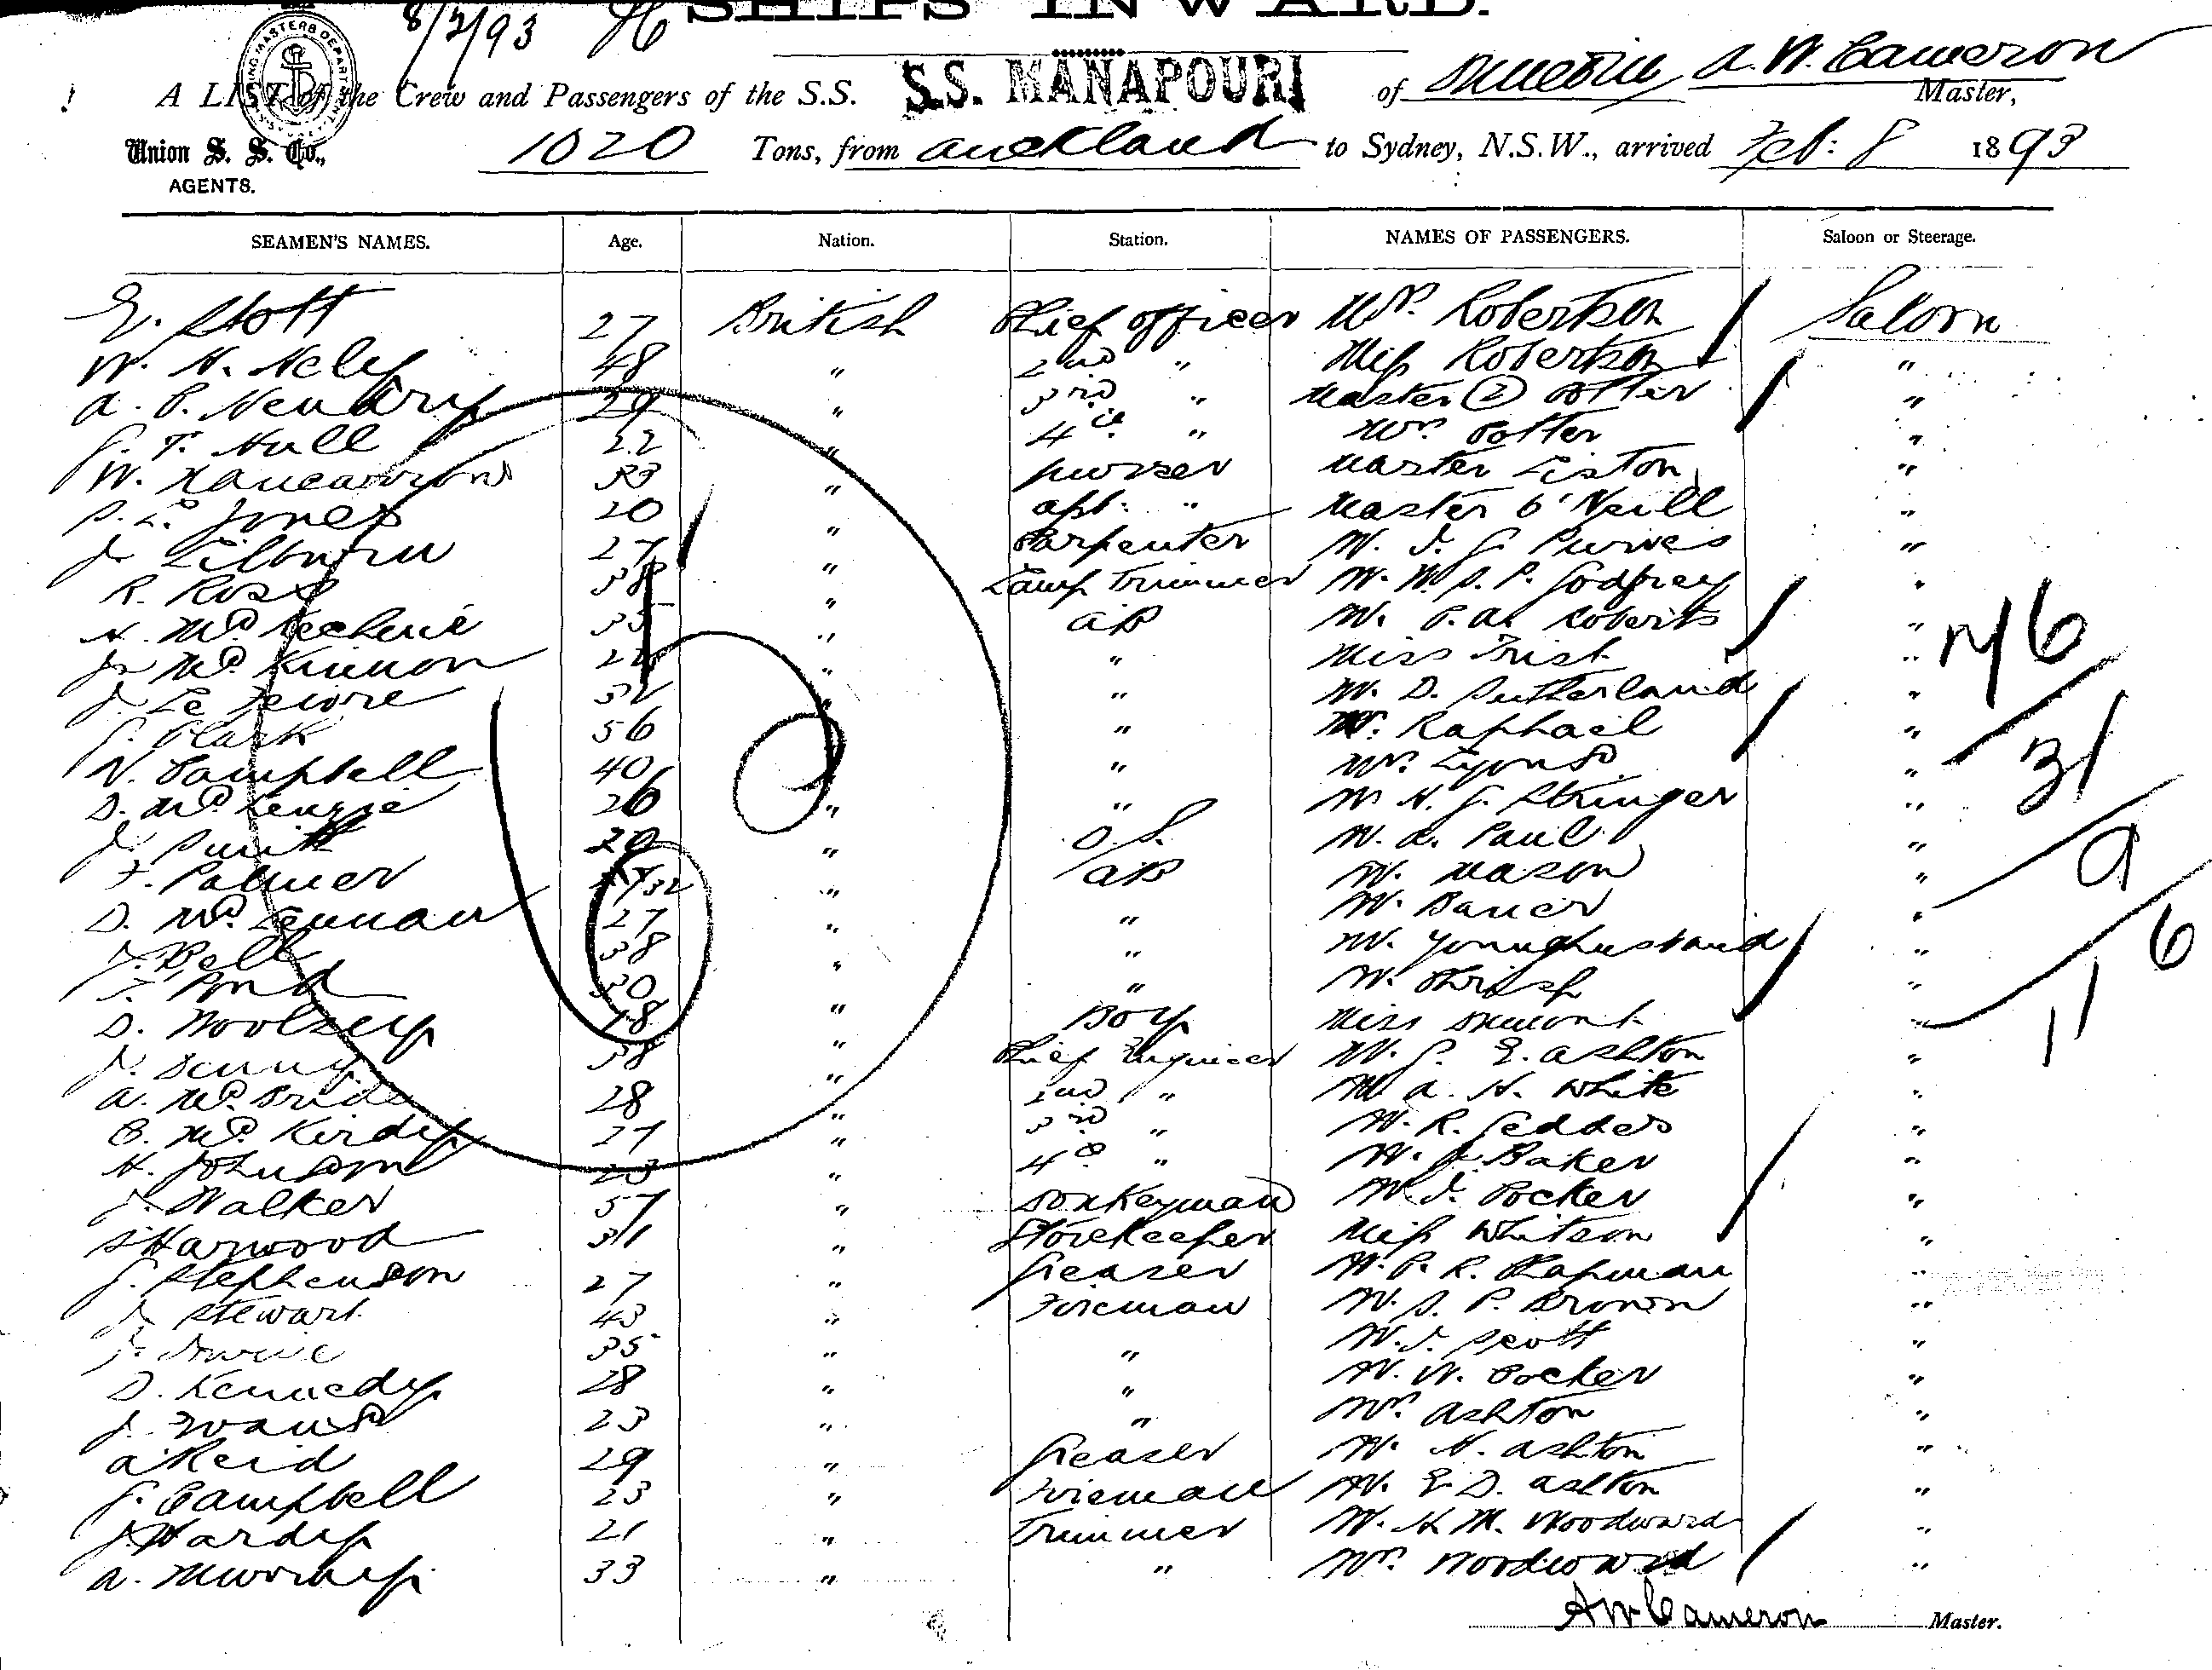 8/2/93
SHIPS INWARD.
A LIST of the Crew and Passengers of the S.S. S.S. MANAPOURI of Dunedin, A. W. Cameron Master,
Union S. S. Co., AGENTS. 1020 Tons, from Auckland to Sydney, N.S.W., arrived Feb: 8 1893
SEAMEN'S NAMES. Age. Nation. Station. NAMES OF PASSENGERS. Saloon or Steerage.
E. Stott 27 British Chief Officer Mrs. Robertson Saloon
W. H. Neley 48 " 2nd " Miss Robertson "
A. P. Hendry 29 " 3rd " Master (2) Potter "
G. T. Hull 22 " 4th " Mrs. Potter "
W. 33 " purser Master Liston "
L. Jones 20 " asst: " Master O'Neill "
J. Tilburn 27 " Carpenter M. J. G. Purves "
R. Ross 38 " Lamp Trimmer M. W. S. P. Godfrey "
H. McKechnie 35 " AB M. P. A. Roberts "
J. McKinnon 22 " " Miss Trist "
J. Le Feivre 32 " " M. D. Sutherland "
G. Clark 56 " " M. Raphael "
N. Campbell 40 " " Mrs. Lyons "
D. McKenzie 26 " " M. H. G. Stringer "
J. Smith 20 " O.S. M. A. Paul "
F. Palmer 32 " AB M. Mason "
D. McLennan 27 " " M. Bauer "
J. Bell 38 " " M. Younghusband "
T. Pond 30 " " M. "
D. Woolsey 18 " Boy Miss Dumont "
J. Denny 38 " Chief Engineer M. G. E. Ashton "
A. McBride 28 " 2nd " M A. H. White "
B. McKirdy 27 " 3rd " M. R. Geddes "
H. Johnson 23 " 4th " M. J. Baker "
J. Walker 57 " Donkeyman M. J. Pocker "
S Harwood 31 " Storekeeper Miss Whitson "
G. Stephenson 27 " Greaser M. P. R. Chapman "
J. Stewart 43 " Fireman M. S. P. Brown "
J. 35 " " M. J. Scott "
D. Kennedy 28 " " M. W. Pocker "
J. Evans 23 " " Mrs. Ashton "
A Reid 29 " Greaser M. H. Ashton "
G. Campbell 23 " Fireman M. E. D. Ashton "
J. Hardy 21 " Trimmer M. H. M. Woodward "
A. Murray 33 " " Mrs. Woodward "
46
31
9
6
11
AW Cameron Master.